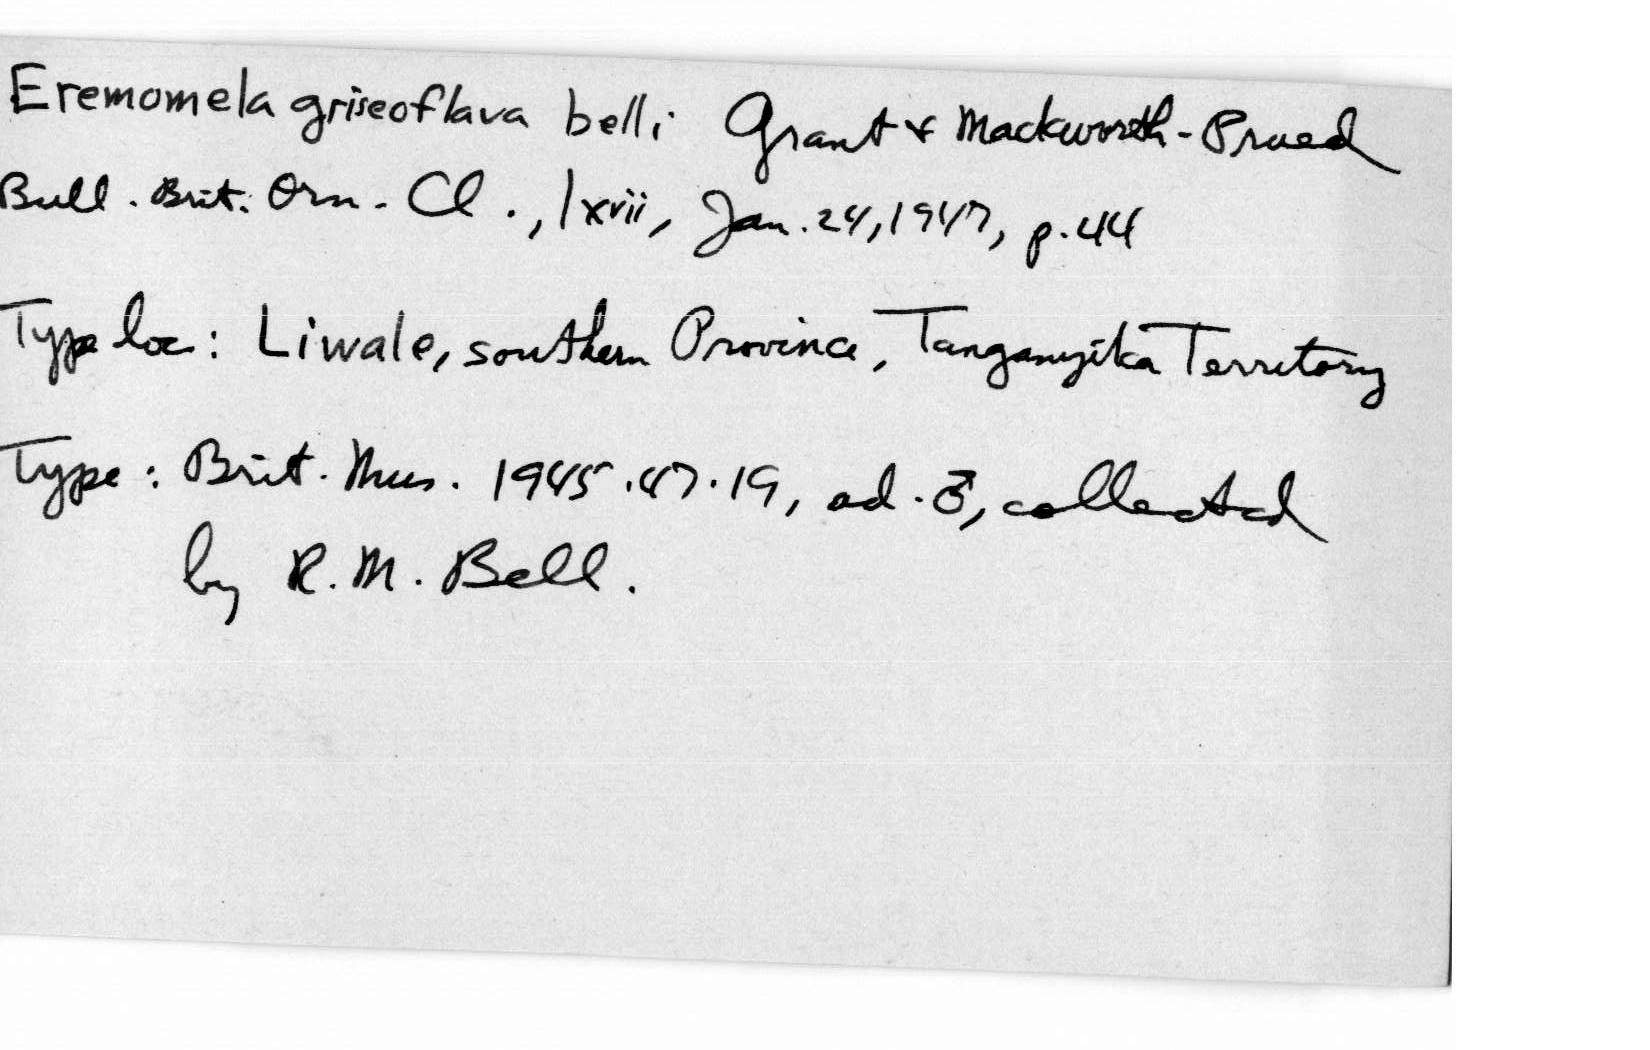 Eremomela griseoflava belli Grant & Mackworth-Praed
Bull. Brit. Orn. Cl., lxvii, Jan. 24, 1947, p. 44
Type loc: Liwale, southern Province, Tanganyika Territory
Type: Brit. Mus. 1945.47.19, ad. ♂, collected
by R. M. Bell.